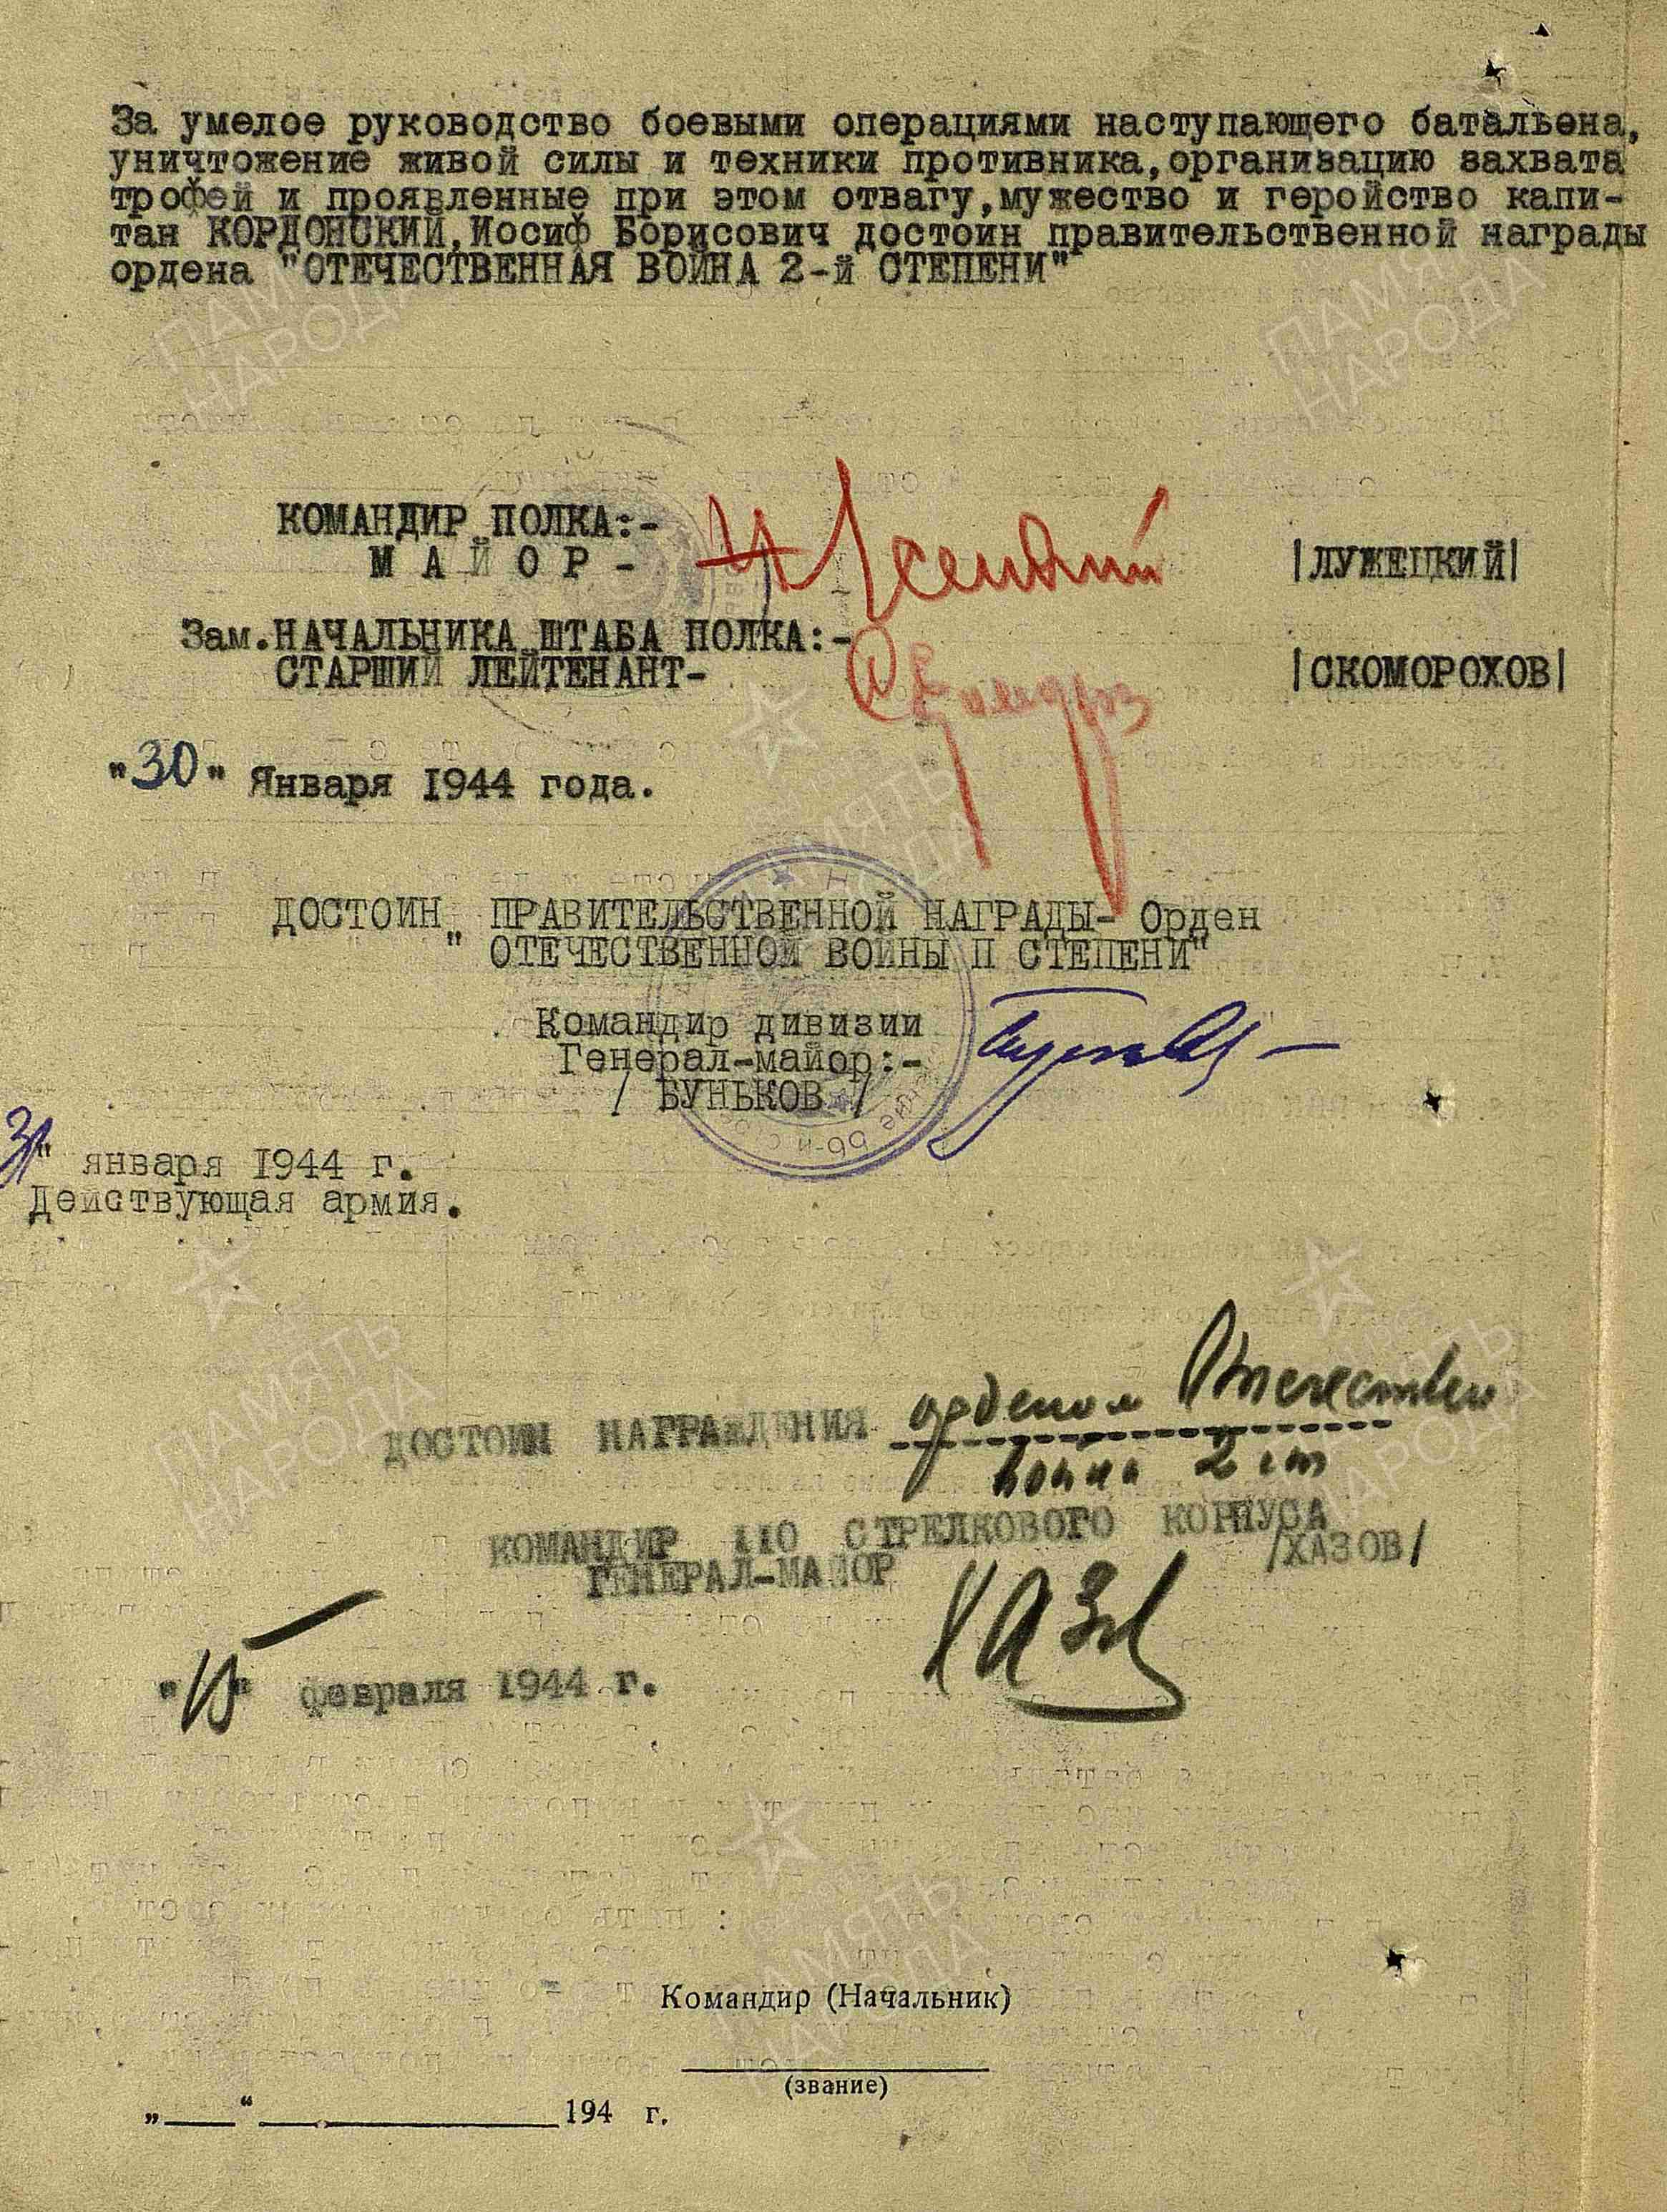 За умелое руководство боевыми операциями наступающего батальена,
уничтожение живой силы и техники противника,организацию захвата
трофей и проявленные при этом отвагу,мужество и геройство капи-
тан КОРДОНСКИЙ,Иосиф Борисович достоин правительственной награды
ордена "ОТЕЧЕСТВЕННАЯ ВОЙНА 2-й СТЕПЕНИ"
КОМАНДИР ПОЛКА:-
МАЙОР - |ЛУЖЕЦКИЙ|
Зам.НАЧАЛЬНИКА ШТАБА ПОЛКА:-
СТАРШИЙ ЛЕЙТЕНАНТ- |СКОМОРОХОВ|
"30" Января 1944 года.
ДОСТОИН ПРАВИТЕЛЬСТВЕННОЙ НАГРАДЫ- Орден
" ОТЕЧЕСТВЕННОЙ ВОЙНЫ П СТЕПЕНИ"
Командир дивизии
Генерал-майор:-
/ БУНЬКОВ /
31" января 1944 г.
Действующая армия.
ДОСТОИН НАГРАЖДЕНИЯ орденом Отечествен
войны 2 ст
КОМАНДИР 110 СТРЕЛКОВОГО КОРПУСА
ГЕНЕРАЛ-МАЙОР /ХАЗОВ/
Хазов
"15" февраля 1944 г.
Командир (Начальник)
(звание)
„ “ 194 г.
ПАМЯТЬ
НАРОДА
ПАМЯТЬ
НАРОДА
ПАМЯТЬ
НАРОДА
ПАМЯТЬ
НАРОДА
ПАМЯТЬ
НАРОДА
ПАМЯТЬ
НАРОДА